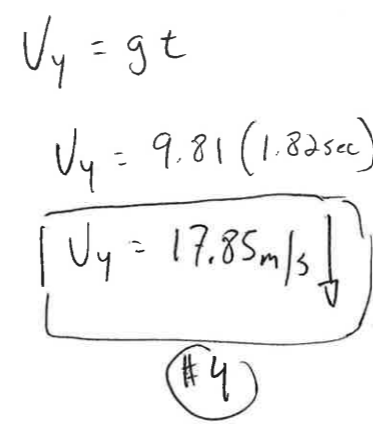 Vy = gt
Vy = 9.81 (1.82sec)
Vy = 17.85m/s ↓
#4